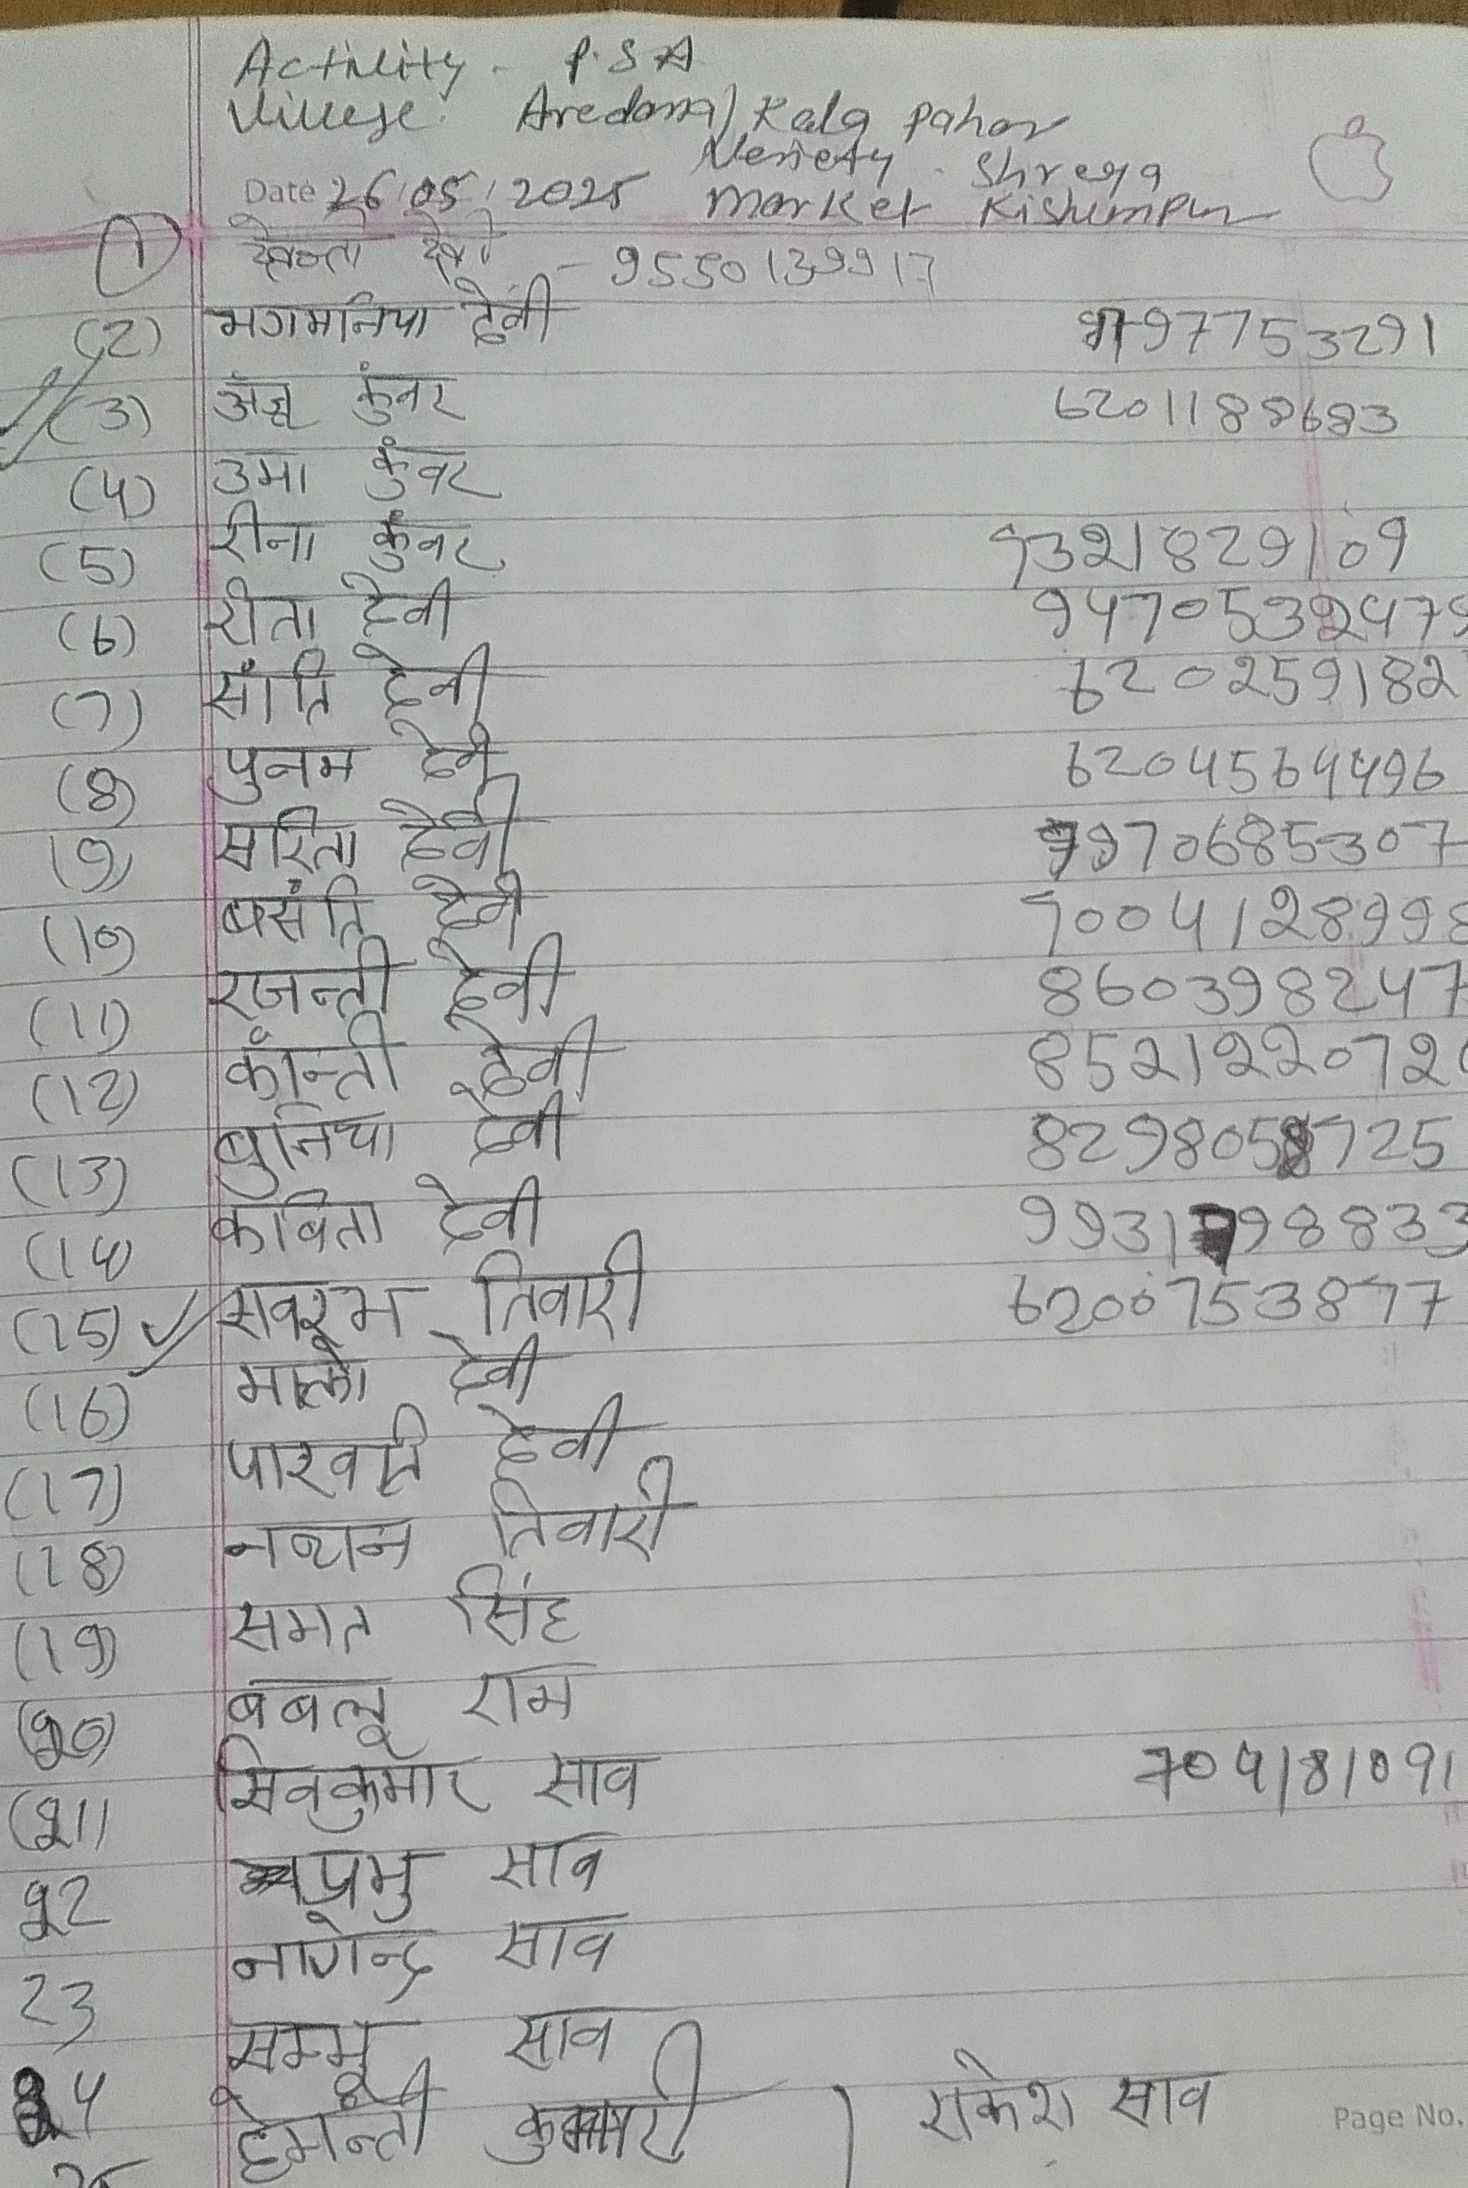 Activity - P.S.A
Village: Aredana / Kala pahar
Veriety - Shreya
Date 26/05/2025 Market Kishunpur
(1) देवन्ती देवी - 9550139917
(2) भगमनिया देवी 97753291
(3) अंजू कुंवर 6201188683
(4) उमा कुंवर
(5) रीना कुंवर 9321829109
(6) रीता देवी 9470532479
(7) साँति देवी 620259182
(8) पुनम देवी 6204564496
(9) सरिता देवी 9970685307
(10) बसंति देवी 7004128998
(11) रजन्ती देवी 860398247
(12) काँन्ती देवी 852122072
(13) बुनिया देवी 8298058725
(14) कबिता देवी 9931798833
(15) सवरूम तिवारी 6200753877
(16) मालो देवी
(17) पारवती देवी
(18) नथन तिवारी
(19) समत सिंह
(20) बबलू राम
(21) सिवकुमार साव 704181091
22 प्रभु साव
23 नागेन्द्र साव
24 सम्भू साव
25 हेमन्ती कुमारी / राकेश साव
Page No.